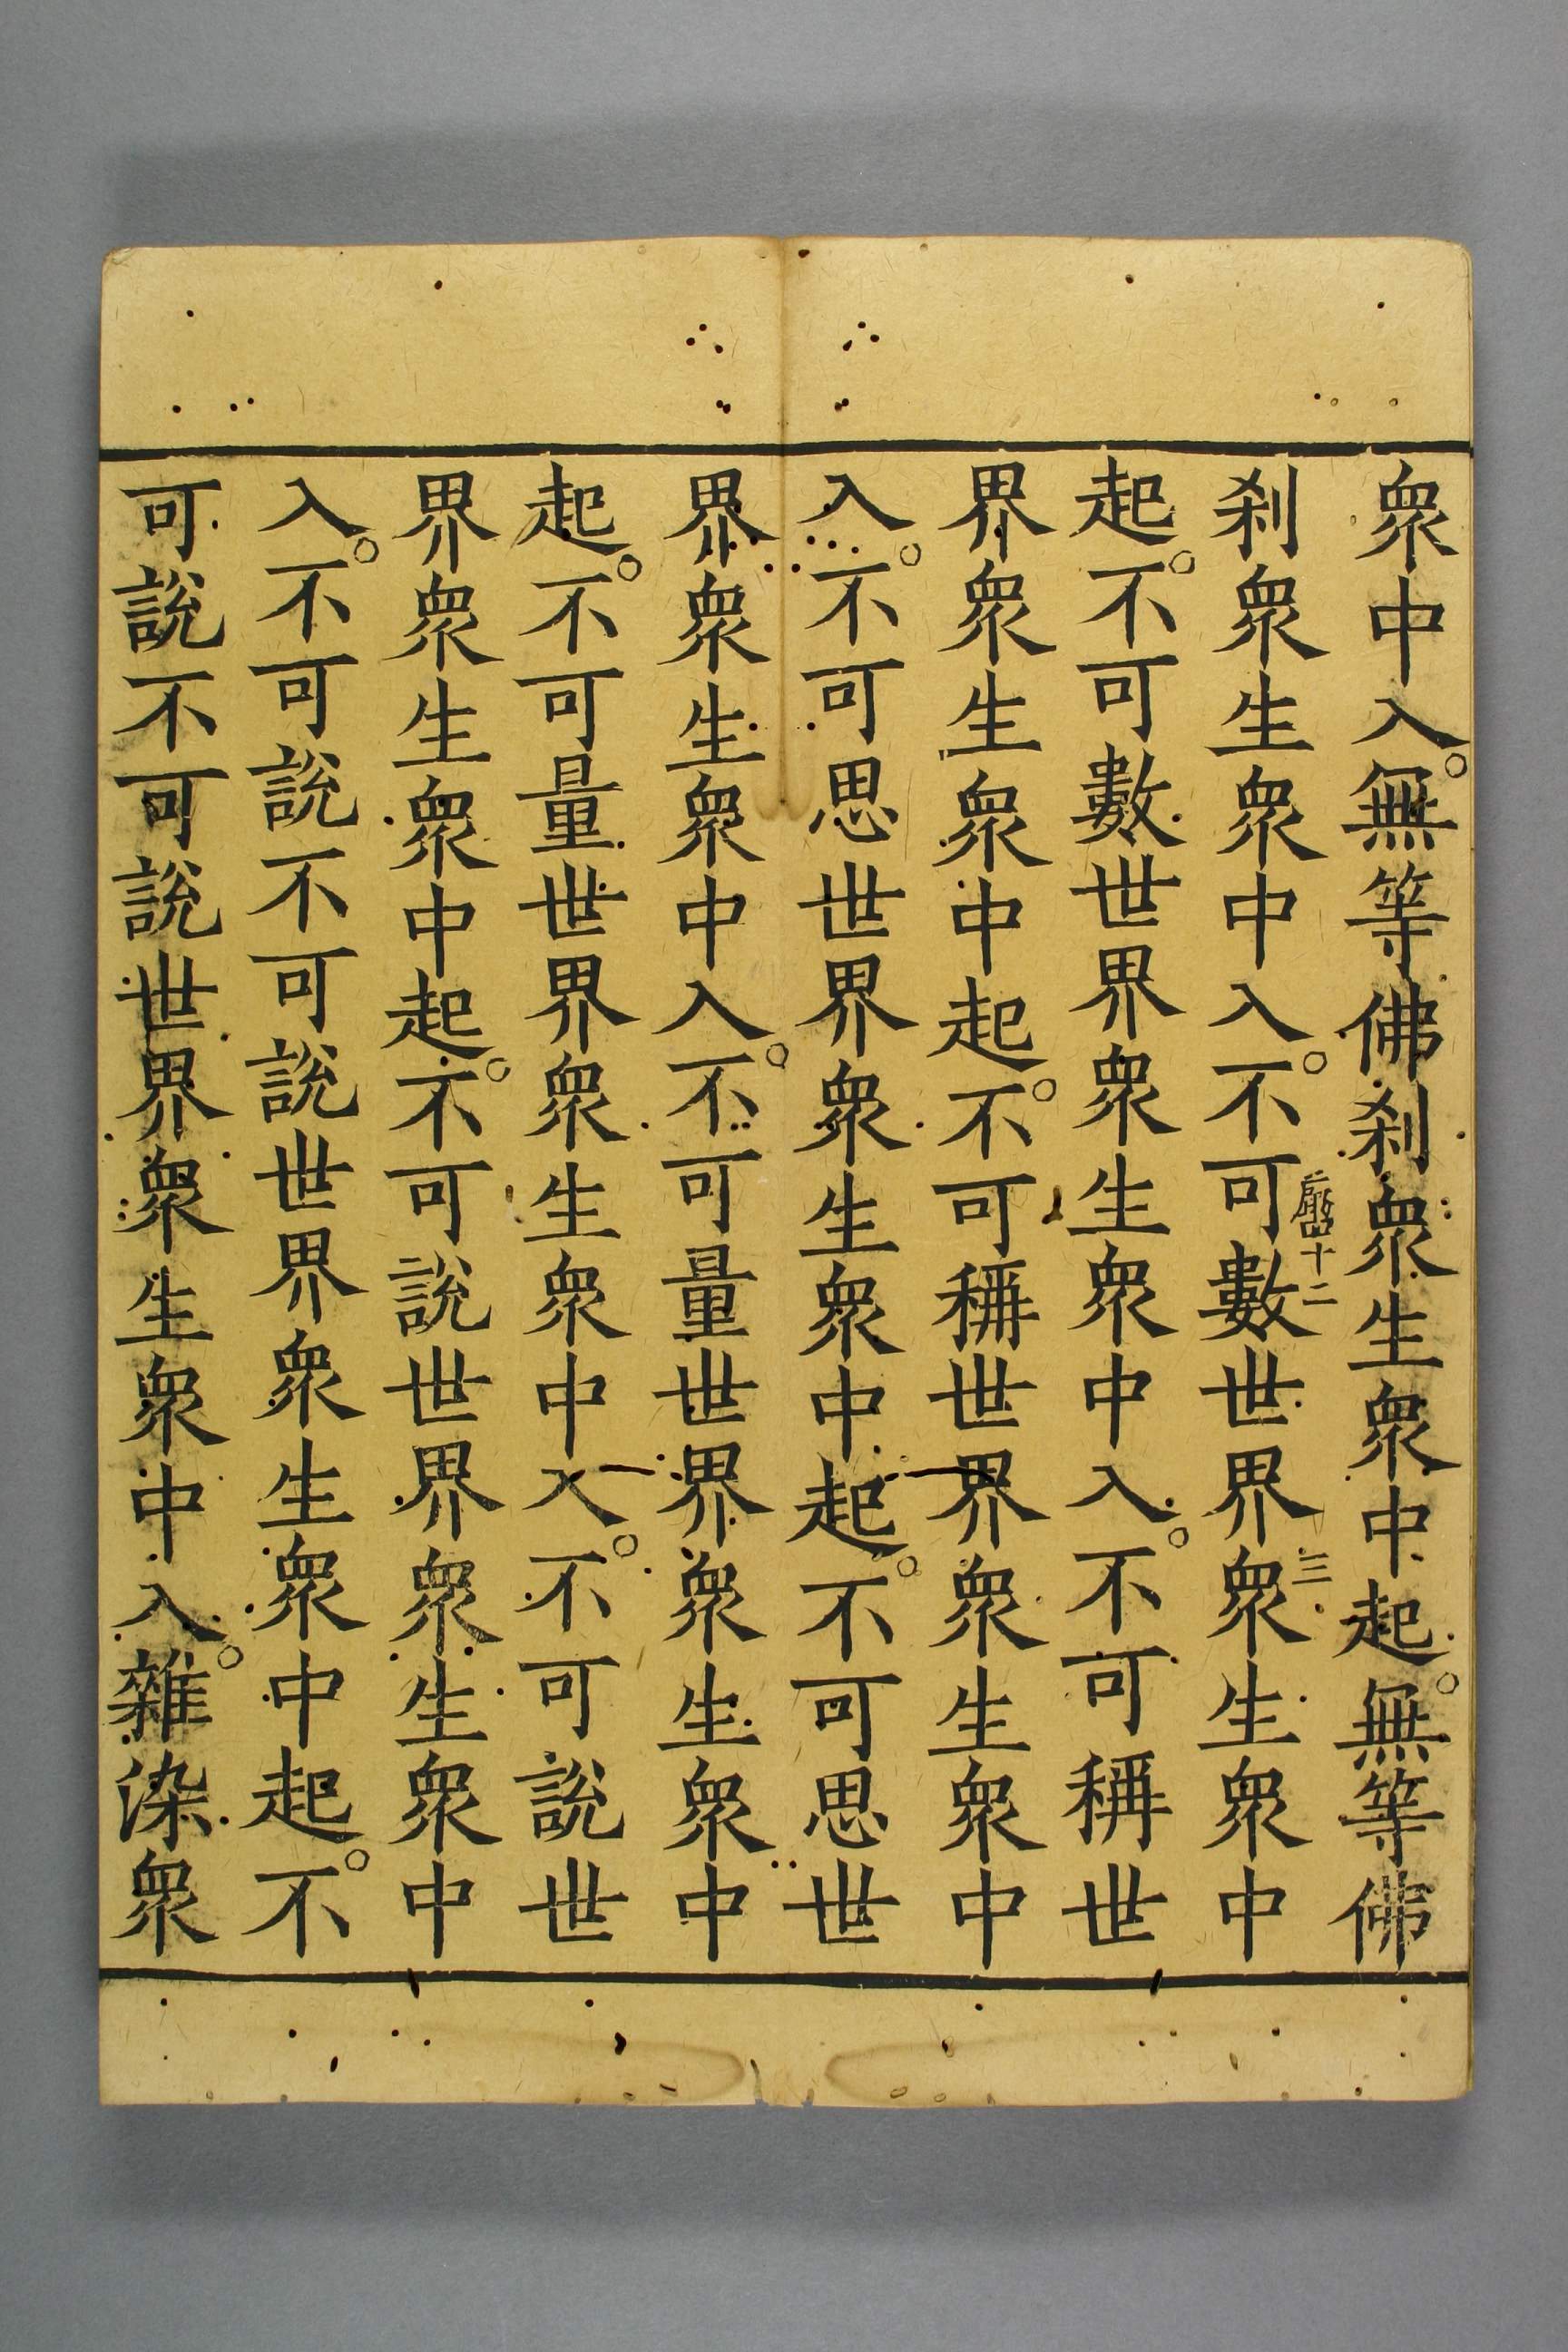 衆中入。無等佛刹衆生衆中起。無等佛
十二 三
刹衆生衆中入。不可數世界衆生衆中
起。不可數世界衆生衆中入。不可稱世
界衆生衆中起。不可稱世界衆生衆中
入。不可思世界衆生衆中起。不可思世
界衆生衆中入。不可量世界衆生衆中
起。不可量世界衆生衆中入。不可說世
界衆生衆中起。不可說世界衆生衆中
入。不可說不可說世界衆生衆中起。不
可說不可說世界衆生衆中入。雜染衆